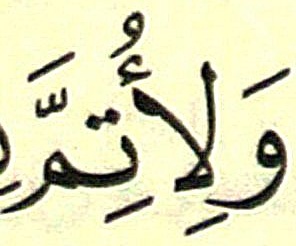 وَلِأُتِمَّ